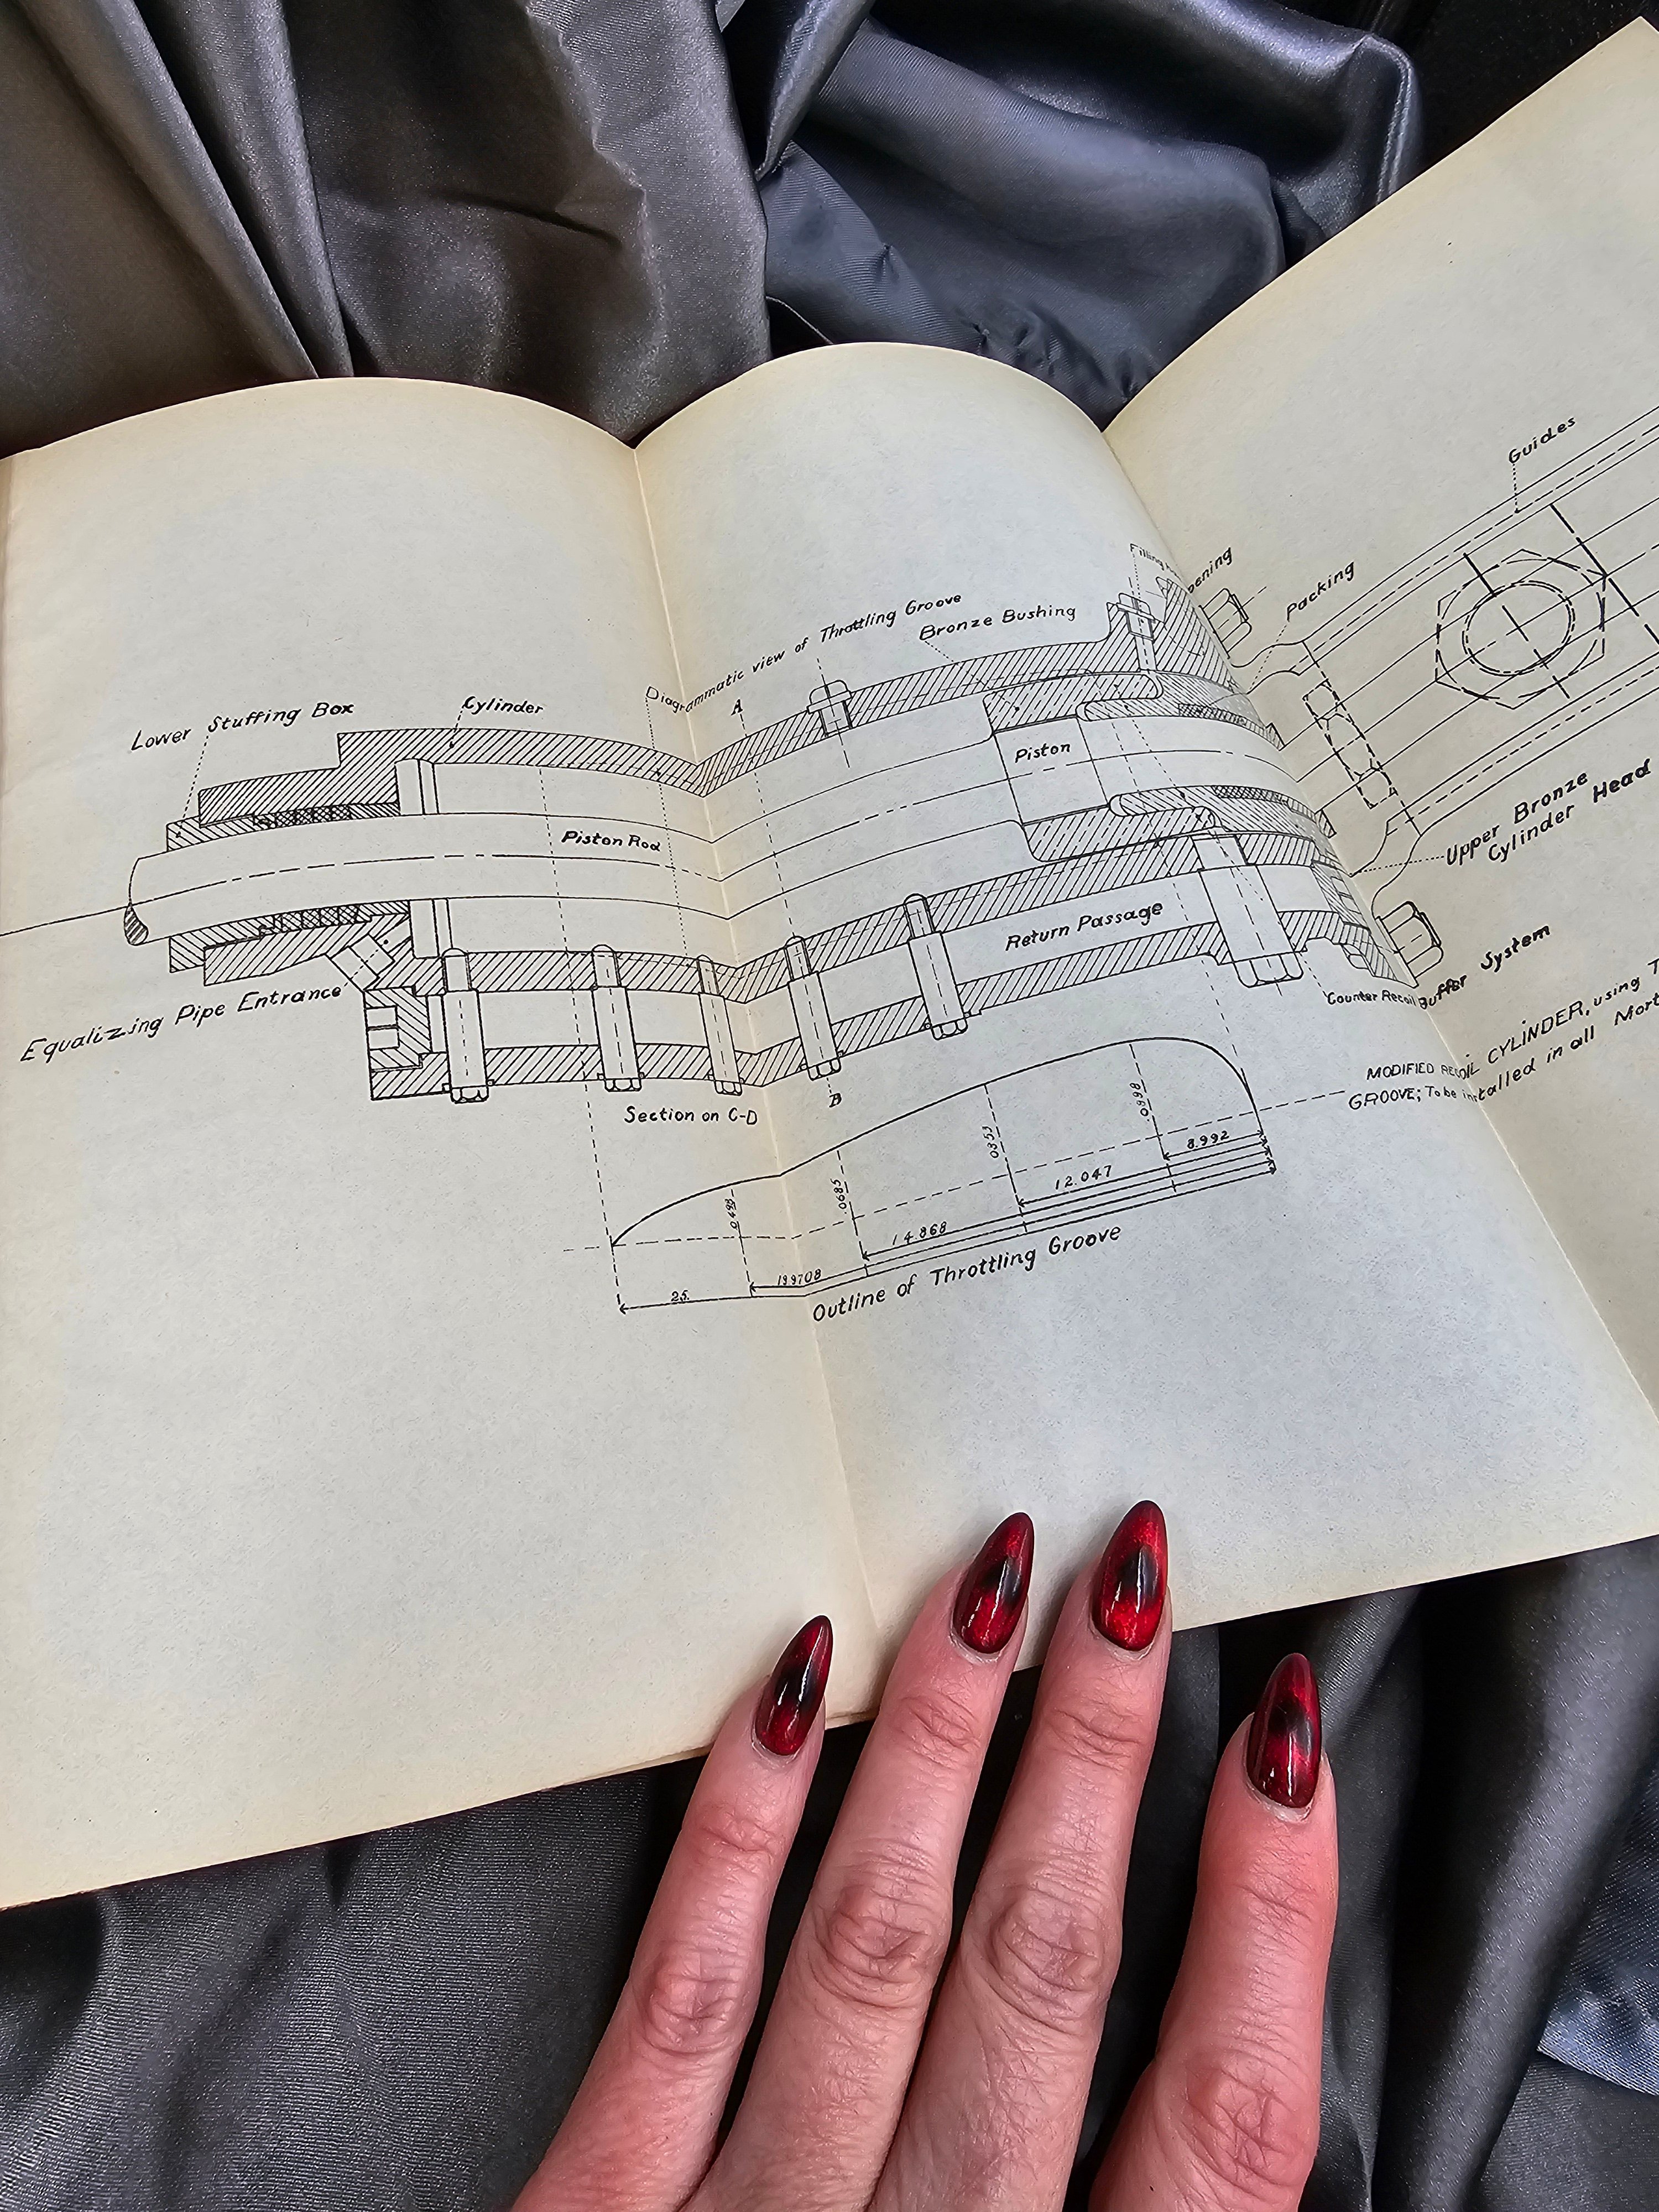 Guides
Filling
Opening
Packing
Diagrammatic view of Throttling Groove
Bronze Bushing
Lower Stuffing Box
Cylinder
A
Piston
Piston Rod
Upper Bronze
Cylinder Head
Return Passage
Equalizing Pipe Entrance
Counter Recoil Buffer System
B
Section on C-D
MODIFIED RECOIL CYLINDER, using T
GROOVE; To be installed in all Mort
.0493
.0685
.0853
.0898
8.992
12.047
14.868
199708
25.
Outline of Throttling Groove